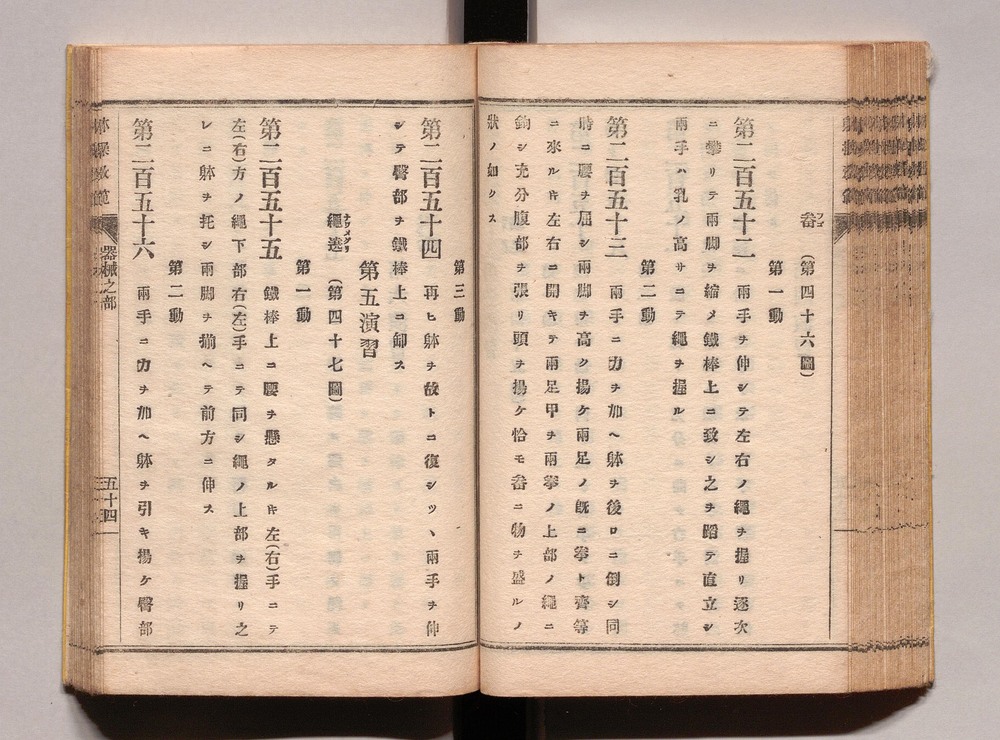 畚 (第四十六圖)
第一動
第二百五十二 兩手チ伸シテ左右ノ繩チ握リ逐次
ニ攀リテ兩脚チ縮メ鐵棒上ニ致シ之チ蹈テ直立シ
兩手ハ乳ノ高サニテ繩チ握ル
第二動
第二百五十三 兩手ニ力チ加ヘ躰チ後ロニ倒シ同
時ニ腰チ屈シ兩脚チ高ク揚ケ兩足ノ既ニ拳ト齊等
ニ來ルキ左右ニ開キテ兩足甲チ兩拳ノ上部ノ繩ニ
鉤シ充分腹部チ張リ頭チ揚ケ恰モ畚ニ物チ盛ルノ
狀ノ如クス
第三動
第二百五十四 再ヒ躰チ故トニ復シツヽ兩手チ伸
シテ臀部チ鐵棒上ニ卸ス
第五演習
繩遶 (第四十七圖)
第一動
第二百五十五 鐵棒上ニ腰チ懸タルキ左(右)手ニテ
左(右)方ノ繩下部右(左)手ニテ同シ繩ノ上部チ握リ之
レニ躰チ托シ兩脚チ揃ヘテ前方ニ伸ス
第二動
第二百五十六 兩手ニ力チ加ヘ躰チ引キ揚ケ臀部
體操教範 器械之部 五十四